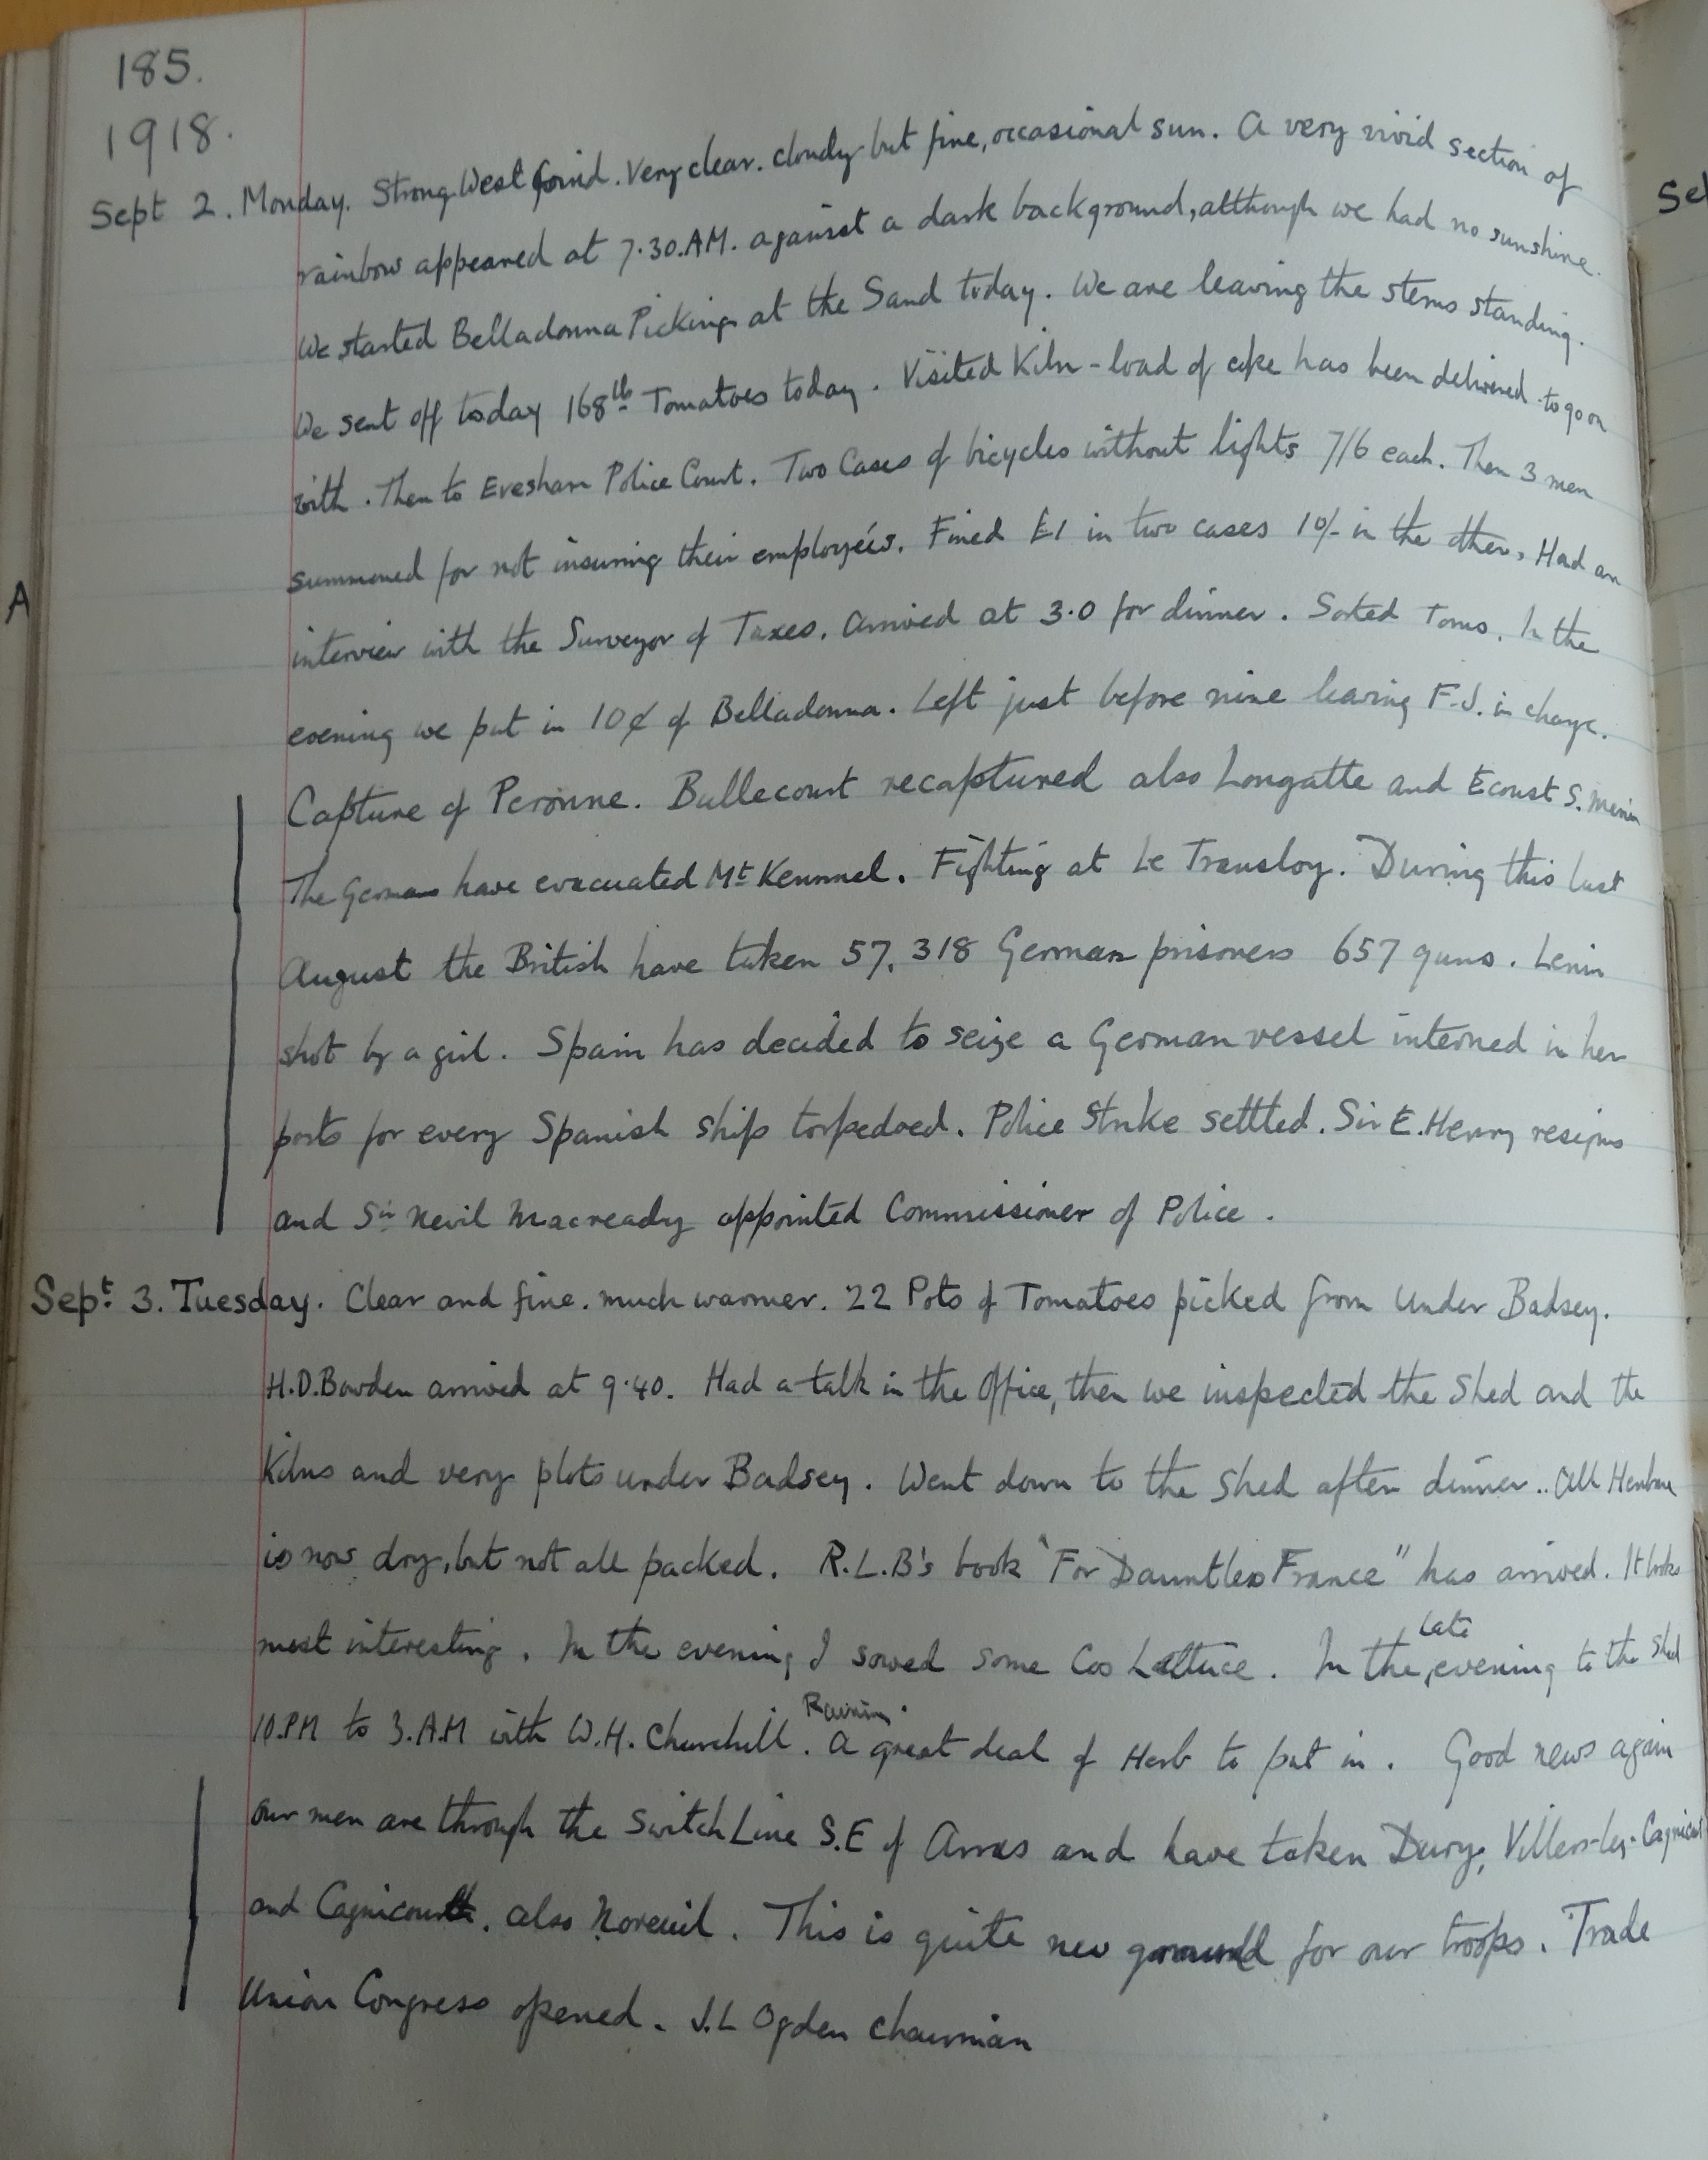 185.
1918.
Sept 2. Monday. Strong West wind. Very clear. cloudy but fine, occasional sun. A very vivid section of
rainbow appeared at 7.30.AM. against a dark background, although we had no sunshine.
We started Belladonna Picking at the Sand today. We are leaving the stems standing.
We sent off today 168lb Tomatoes today. Visited Kiln - load of coke has been delivered to go on
with. Then to Evesham Police Court. Two Cases of bicycles without lights 7/6 each. Then 3 men
summoned for not insuring their employées. Fined £1 in two cases 10/- in the other. Had an
interview with the Surveyor of Taxes. Arrived at 3.0 for dinner. Sorted Toms. In the
evening we put in 10¢ of Belladonna. Left just before nine leaving F.J. in charge.
Capture of Peronne. Bullecourt recaptured also Longatte and Ecoust S. Mein
The Germans have evacuated Mt Kemmel. Fighting at Le Transloy. During this last
August the British have taken 57,318 German prisoners 657 guns. Lenin
shot by a girl. Spain has decided to seize a German vessel interned in her
ports for every Spanish ship torpedoed. Police Strike settled. Sir E. Henry resigns
and Sir Nevil Macready appointed Commissioner of Police.
Sept. 3. Tuesday. Clear and fine. much warmer. 22 Pots of Tomatoes picked from Under Badsey.
H.D. Bowden arrived at 9.40. Had a talk in the Office, then we inspected the Shed and the
Kilns and very plots under Badsey. Went down to the Shed after dinner.. All Henbane
is now dry, but not all packed. R.L.B's book "For Dauntless France" has arrived. It looks
most interesting. In the evening I sowed some Cos Lettuce. In the late evening to the Shed
10.PM to 3.A.M with W.H. Churchill. Raining. A great deal of Herb to put in. Good news again
our men are through the Switch Line S.E of Arras and have taken Dury, Villers-les-Cagnicourt
and Cagnicourt. also Noreuil. This is quite new ground for our troops. Trade
Union Congress opened. J.L Ogden chairman
A